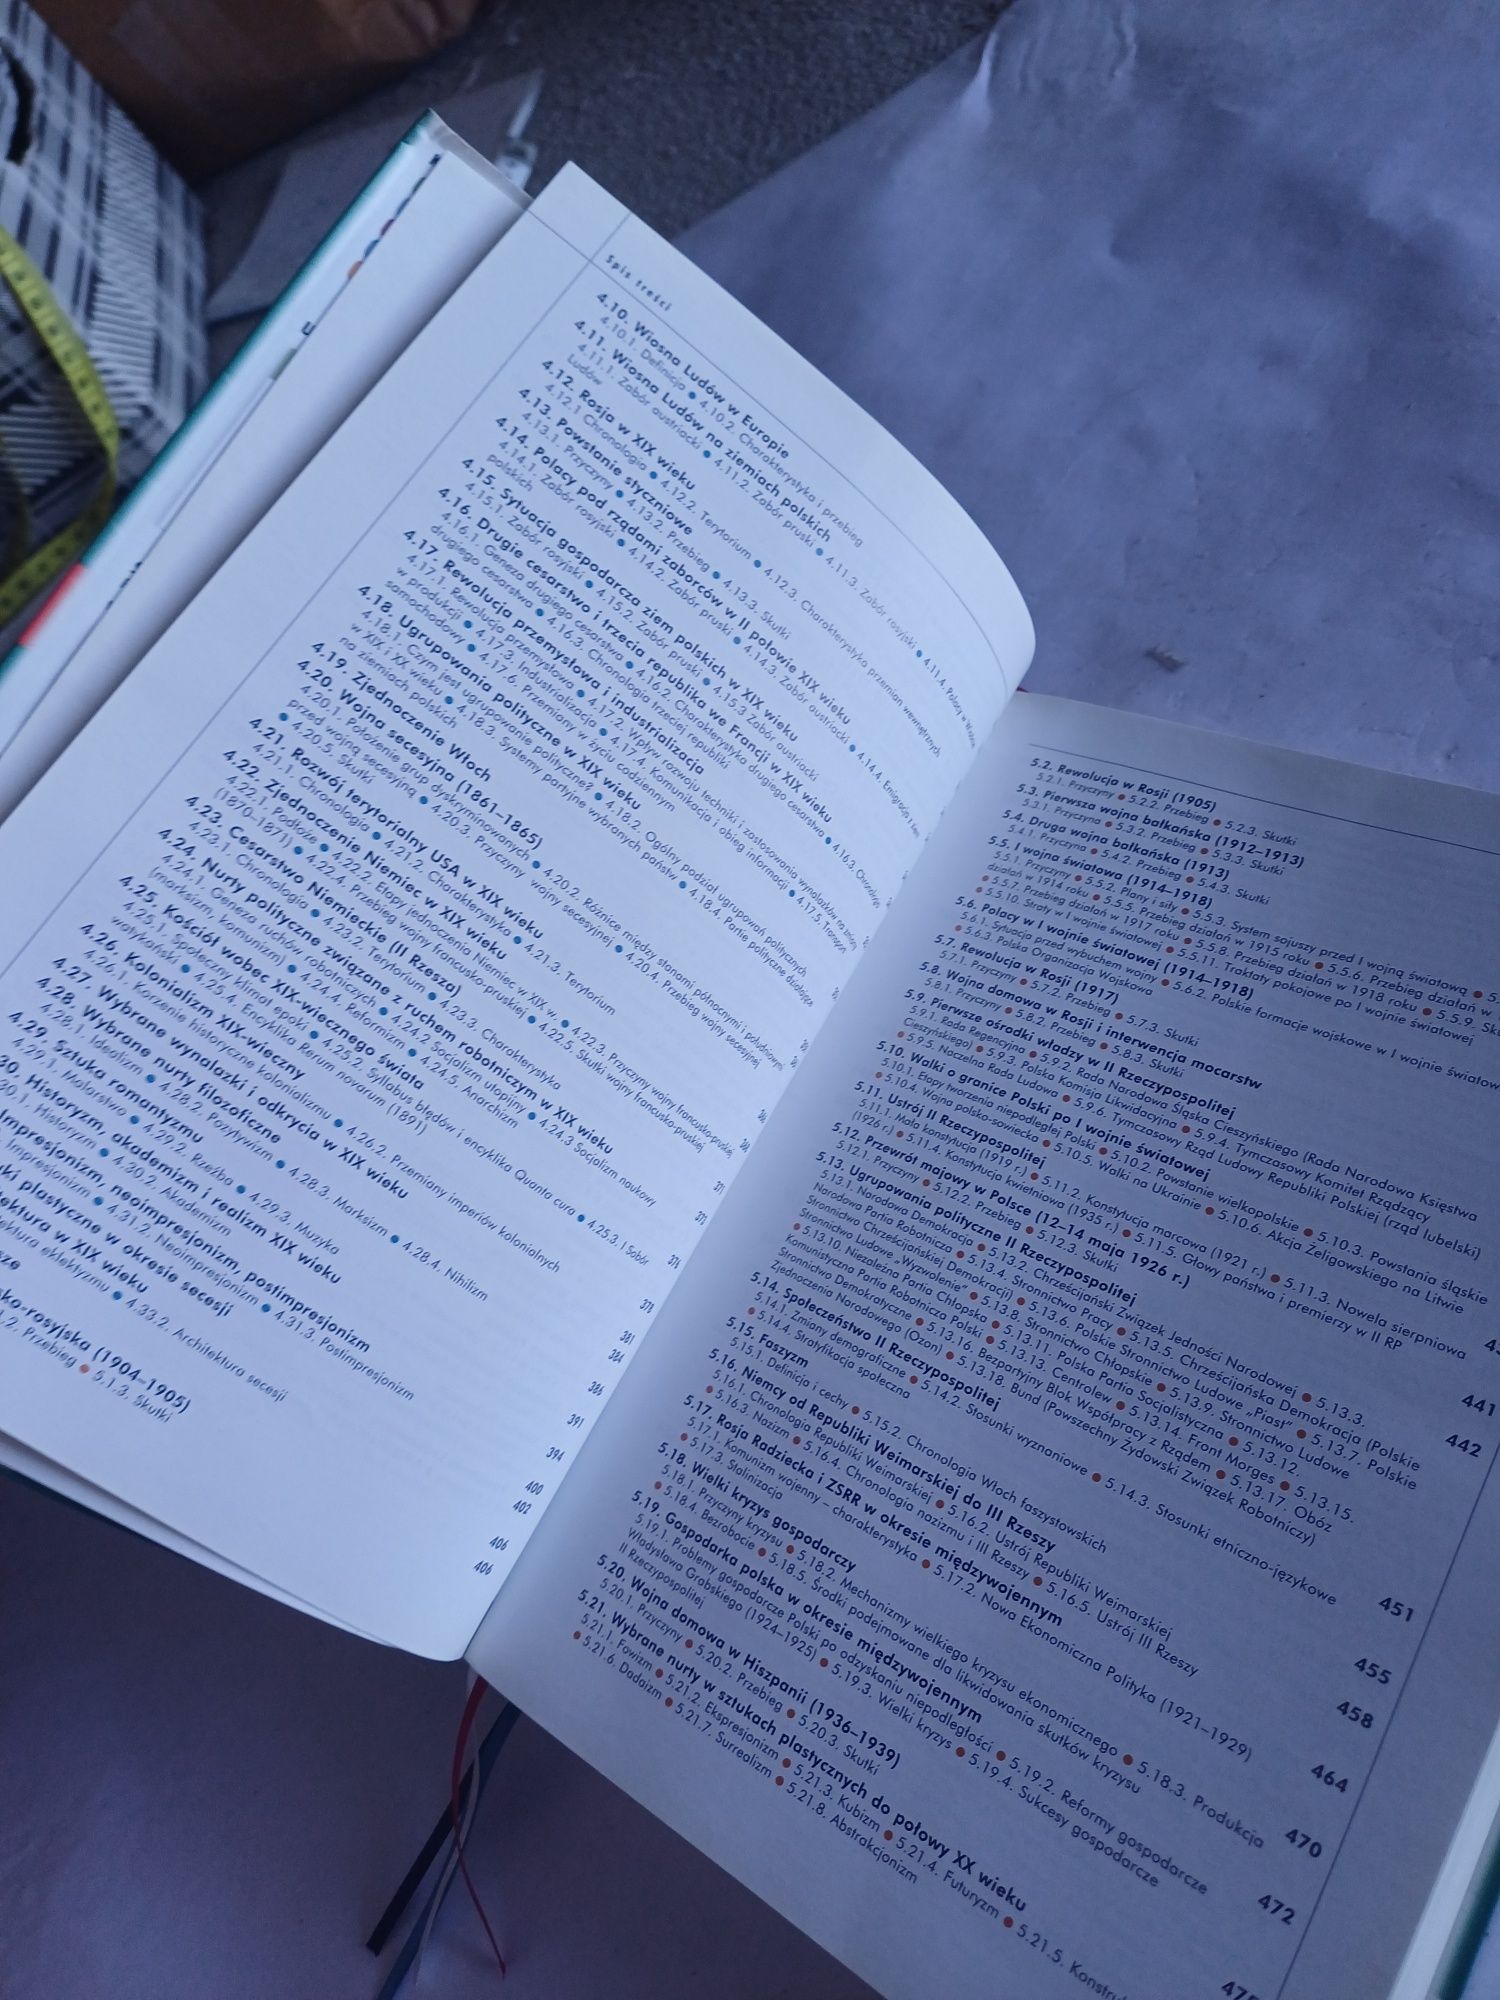 Spis treści
4.10. Wiosna Ludów w Europie
4.10.1. Definicja ● 4.10.2. Charakterystyka i przebieg
4.11. Wiosna Ludów na ziemiach polskich
4.11.1. Zabór austriacki ● 4.11.2. Zabór pruski ● 4.11.3. Zabór rosyjski ● 4.11.4. Polacy w Wiośnie
Ludów
4.12. Rosja w XIX wieku
4.12.1 Chronologia ● 4.12.2. Terytorium ● 4.12.3. Charakterystyka przemian wewnętrznych
4.13. Powstanie styczniowe
4.13.1. Przyczyny ● 4.13.2. Przebieg ● 4.13.3. Skutki
4.14. Polacy pod rządami zaborców w II połowie XIX wieku
4.14.1. Zabór rosyjski ● 4.14.2. Zabór pruski ● 4.14.3. Zabór austriacki ● 4.14.4. Emigracja z ziem
polskich
4.15. Sytuacja gospodarcza ziem polskich w XIX wieku
4.15.1. Zabór rosyjski ● 4.15.2. Zabór pruski ● 4.15.3 Zabór austriacki
4.16. Drugie cesarstwo i trzecia republika we Francji w XIX wieku
4.16.1. Geneza drugiego cesarstwa ● 4.16.2. Charakterystyka drugiego cesarstwa ● 4.16.3.
drugiego cesarstwa ● 4.16.3. Chronologia trzeciej republiki
4.17. Rewolucja przemysłowa i industrializacja
4.17.1. Rewolucja przemysłowa ● 4.17.2. Wpływ rozwoju techniki i zastosowania wynalazków na zmiany
w produkcji ● 4.17.3. Industrializacja ● 4.17.4. Komunikacja i obieg informacji ● 4.17.5 Transport
samochodowy ● 4.17.6. Przemiany w życiu codziennym
4.18. Ugrupowania polityczne w XIX wieku
4.18.1. Czym jest ugrupowanie polityczne? ● 4.18.2. Ogólny podział ugrupowań politycznych
w XIX i XX wieku ● 4.18.3. Systemy partyjne wybranych państw ● 4.18.4. Partie polityczne działające
na ziemiach polskich
4.19. Zjednoczenie Włoch
4.20. Wojna secesyjna (1861–1865)
4.20.1. Położenie grup dyskryminowanych ● 4.20.2. Różnice między stanami północnymi i południowymi
przed wojną secesyjną ● 4.20.3. Przyczyny wojny secesyjnej ● 4.20.4. Przebieg wojny secesyjnej
● 4.20.5. Skutki
4.21. Rozwój terytorialny USA w XIX wieku
4.21.1. Chronologia ● 4.21.2. Charakterystyka ● 4.21.3. Terytorium
4.22. Zjednoczenie Niemiec w XIX wieku
4.22.1. Podłoże ● 4.22.2. Etapy jednoczenia Niemiec w XIX w. ● 4.22.3. Przyczyny wojny francusko-pruskiej
(1870–1871) ● 4.22.4. Przebieg wojny francusko-pruskiej ● 4.22.5. Skutki wojny francusko-pruskiej
4.23. Cesarstwo Niemieckie (II Rzesza)
4.23.1. Chronologia ● 4.23.2. Terytorium ● 4.23.3. Charakterystyka
4.24. Nurty polityczne związane z ruchem robotniczym w XIX wieku
4.24.1. Geneza ruchów robotniczych ● 4.24.2 Socjalizm utopijny ● 4.24.3 Socjalizm naukowy
(marksizm, komunizm) ● 4.24.4. Reformizm ● 4.24.5. Anarchizm 371
4.25. Kościół wobec XIX-wiecznego świata 372
4.25.1. Społeczny klimat epoki ● 4.25.2. Syllabus błędów i encyklika Quanta cura ● 4.25.3. I Sobór
watykański ● 4.25.4. Encyklika Rerum novarum (1891)
4.26. Kolonializm XIX-wieczny
4.26.1. Korzenie historyczne kolonializmu ● 4.26.2. Przemiany imperiów kolonialnych
4.27. Wybrane wynalazki i odkrycia w XIX wieku 378
4.28. Wybrane nurty filozoficzne 381
4.28.1. Idealizm ● 4.28.2. Pozytywizm ● 4.28.3. Marksizm ● 4.28.4. Nihilizm
4.29. Sztuka romantyzmu 384
4.29.1. Malarstwo ● 4.29.2. Rzeźba ● 4.29.3. Muzyka
30. Historyzm, akademizm i realizm XIX wieku 386
30.1. Historyzm ● 4.30.2. Akademizm
Impresjonizm, neoimpresjonizm, postimpresjonizm 391
Impresjonizm ● 4.31.2. Neoimpresjonizm ● 4.31.3. Postimpresjonizm
ki plastyczne w okresie secesji 394
ektura w XIX wieku 400
tektura eklektyzmu ● 4.33.2. Architektura secesji 402
sze 406
ko-rosyjska (1904–1905) 406
.2. Przebieg ● 5.1.3. Skutki
5.2. Rewolucja w Rosji (1905)
5.2.1. Przyczyny ● 5.2.2. Przebieg ● 5.2.3. Skutki
5.3. Pierwsza wojna bałkańska (1912–1913)
5.3.1. Przyczyna ● 5.3.2. Przebieg ● 5.3.3. Skutki
5.4. Druga wojna bałkańska (1913)
5.4.1. Przyczyna ● 5.4.2. Przebieg ● 5.4.3. Skutki
5.5. I wojna światowa (1914–1918)
5.5.1. Przyczyny ● 5.5.2. Plany i siły ● 5.5.3. System sojuszy przed I wojną światową ● 5.
działań w 1914 roku ● 5.5.5. Przebieg działań w 1915 roku ● 5.5.6. Przebieg działań w
● 5.5.7. Przebieg działań w 1917 roku ● 5.5.8. Przebieg działań w 1918 roku ● 5.5.9. Sk
● 5.5.10. Straty w I wojnie światowej ● 5.5.11. Traktaty pokojowe po I wojnie światowej
5.6. Polacy w I wojnie światowej (1914–1918)
5.6.1. Sytuacja przed wybuchem wojny ● 5.6.2. Polskie formacje wojskowe w I wojnie światow
● 5.6.3. Polska Organizacja Wojskowa
5.7. Rewolucja w Rosji (1917)
5.7.1. Przyczyny ● 5.7.2. Przebieg ● 5.7.3. Skutki
5.8. Wojna domowa w Rosji i interwencja mocarstw
5.8.1. Przyczyny ● 5.8.2. Przebieg ● 5.8.3. Skutki
5.9. Pierwsze ośrodki władzy w II Rzeczypospolitej
5.9.1. Rada Regencyjna ● 5.9.2. Rada Narodowa Śląska Cieszyńskiego (Rada Narodowa Księstwa
Cieszyńskiego) ● 5.9.3. Polska Komisja Likwidacyjna ● 5.9.4. Tymczasowy Komitet Rządzący
● 5.9.5. Naczelna Rada Ludowa ● 5.9.6. Tymczasowy Rząd Ludowy Republiki Polskiej (rząd lubelski)
5.10. Walki o granice Polski po I wojnie światowej
5.10.1. Etapy tworzenia niepodległej Polski ● 5.10.2. Powstanie wielkopolskie ● 5.10.3. Powstania śląskie
● 5.10.4. Wojna polsko-sowiecka ● 5.10.5. Walki na Ukrainie ● 5.10.6. Akcja Żeligowskiego na Litwie
5.11. Ustrój II Rzeczypospolitej
5.11.1. Mała konstytucja (1919 r.) ● 5.11.2. Konstytucja marcowa (1921 r.) ● 5.11.3. Nowela sierpniowa
(1926 r.) ● 5.11.4. Konstytucja kwietniowa (1935 r.) ● 5.11.5. Głowy państwa i premierzy w II RP
5.12. Przewrót majowy w Polsce (12–14 maja 1926 r.) 441
5.12.1. Przyczyny ● 5.12.2. Przebieg ● 5.12.3. Skutki
5.13. Ugrupowania polityczne II Rzeczypospolitej 442
5.13.1. Narodowa Demokracja ● 5.13.2. Chrześcijański Związek Jedności Narodowej ● 5.13.3.
Narodowa Partia Robotnicza ● 5.13.4. Stronnictwo Pracy ● 5.13.5. Chrześcijańska Demokracja (Polskie
Stronnictwo Chrześcijańskiej Demokracji) ● 5.13.6. Polskie Stronnictwo Ludowe „Piast” ● 5.13.7. Polskie
Stronnictwo Ludowe „Wyzwolenie” ● 5.13.8. Stronnictwo Chłopskie ● 5.13.9. Stronnictwo Ludowe
● 5.13.10. Niezależna Partia Chłopska ● 5.13.11. Polska Partia Socjalistyczna ● 5.13.12.
Komunistyczna Partia Robotnicza Polski ● 5.13.13. Centrolew ● 5.13.14. Front Morges ● 5.13.15.
Stronnictwo Demokratyczne ● 5.13.16. Bezpartyjny Blok Współpracy z Rządem ● 5.13.17. Obóz
Zjednoczenia Narodowego (Ozon) ● 5.13.18. Bund (Powszechny Żydowski Związek Robotniczy)
5.14. Społeczeństwo II Rzeczypospolitej 451
5.14.1. Zmiany demograficzne ● 5.14.2. Stosunki wyznaniowe ● 5.14.3. Stosunki etniczno-językowe
● 5.14.4. Stratyfikacja społeczna
5.15. Faszyzm 455
5.15.1. Definicja i cechy ● 5.15.2. Chronologia Włoch faszystowskich
5.16. Niemcy od Republiki Weimarskiej do III Rzeszy 458
5.16.1. Chronologia Republiki Weimarskiej ● 5.16.2. Ustrój Republiki Weimarskiej
● 5.16.3. Nazizm ● 5.16.4. Chronologia nazizmu i III Rzeszy ● 5.16.5. Ustrój III Rzeszy
5.17. Rosja Radziecka i ZSRR w okresie międzywojennym 464
5.17.1. Komunizm wojenny – charakterystyka ● 5.17.2. Nowa Ekonomiczna Polityka (1921–1929)
● 5.17.3. Stalinizacja
5.18. Wielki kryzys gospodarczy 470
5.18.1. Przyczyny kryzysu ● 5.18.2. Mechanizmy wielkiego kryzysu ekonomicznego ● 5.18.3. Produkcja
● 5.18.4. Bezrobocie ● 5.18.5. Środki podejmowane dla likwidowania skutków kryzysu
5.19. Gospodarka polska w okresie międzywojennym 472
5.19.1. Problemy gospodarcze Polski po odzyskaniu niepodległości ● 5.19.2. Reformy gospodarcze
Władysława Grabskiego (1924–1925) ● 5.19.3. Wielki kryzys ● 5.19.4. Sukcesy gospodarcze
II Rzeczypospolitej
5.20. Wojna domowa w Hiszpanii (1936–1939)
5.20.1. Przyczyny ● 5.20.2. Przebieg ● 5.20.3. Skutki
5.21. Wybrane nurty w sztukach plastycznych do połowy XX wieku
5.21.1. Fowizm ● 5.21.2. Ekspresjonizm ● 5.21.3. Kubizm ● 5.21.4. Futuryzm ● 5.21.5. Konstru
● 5.21.6. Dadaizm ● 5.21.7. Surrealizm ● 5.21.8. Abstrakcjonizm